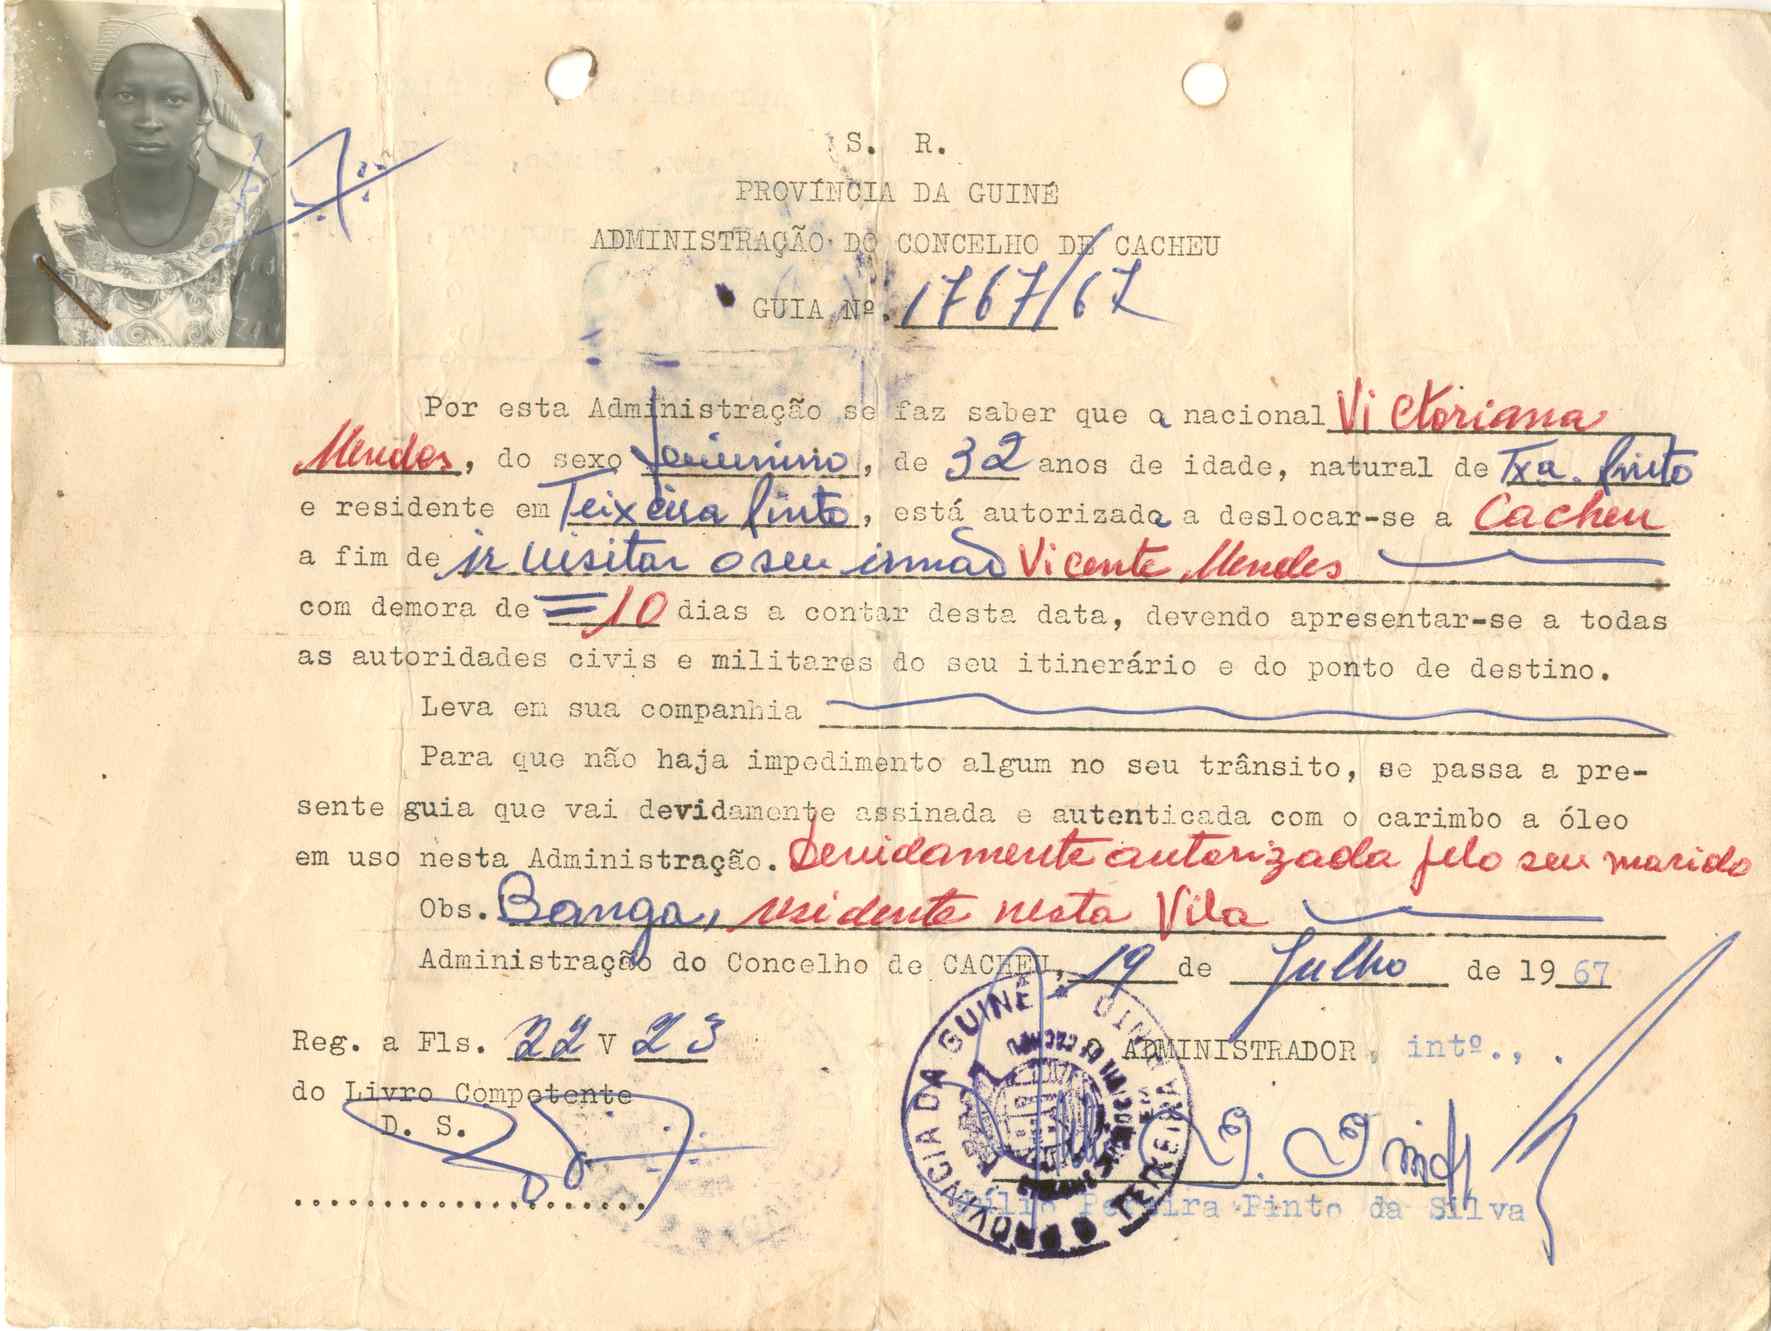 S. R.
PROVÍNCIA DA GUINÉ
ADMINISTRAÇÃO DO CONCELHO DE CACHEU
GUIA Nº. 1767/67
Por esta Administração se faz saber que a nacional Victoriana
Mendes, do sexo feminino, de 32 anos de idade, natural de Txa. Pinto
e residente em Teixeira Pinto, está autorizada a deslocar-se a Cacheu
a fim de ir visitar o seu irmão Vicente Mendes
com demora de =10 dias a contar desta data, devendo apresentar-se a todas
as autoridades civis e militares do seu itinerário e do ponto de destino.
Leva em sua companhia
Para que não haja impedimento algum no seu trânsito, se passa a pre-
sente guia que vai devidamente assinada e autenticada com o carimbo a óleo
em uso nesta Administração. Devidamente autorizada pelo seu marido
Obs. Banga, residente nesta Vila
Administração do Concelho de CACHEU, 19 de Julho de 1967
Reg. a Fls. 22 V 23
do Livro Competente
D. S.
O ADMINISTRADOR, intº.,
PROVÍNCIA DA GUINÉ
TEIXEIRA PINTO
Pereira Pinto da Silva